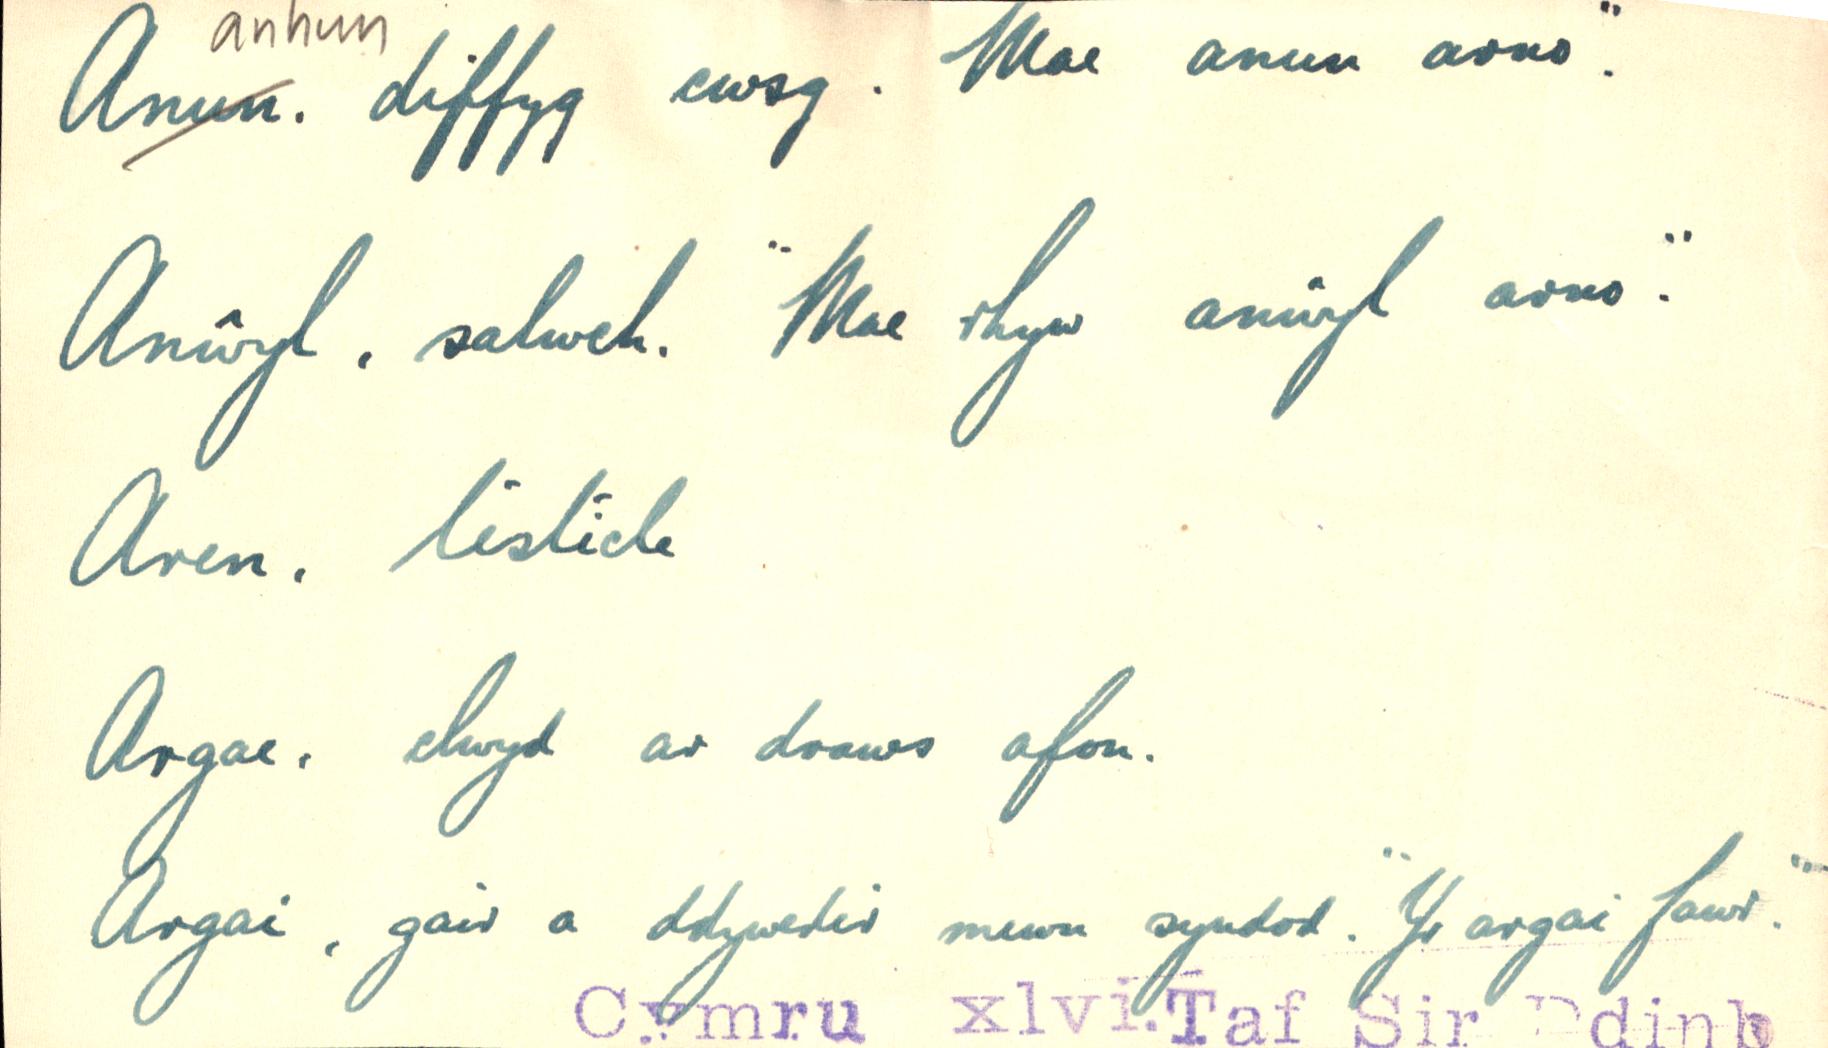 anhun
Anun. diffyg cwsg. Mae anun arno."
Anŵyl, salwch. "Mae rhyw anŵyl arno."
Aren. testicle
Argae. clwyd ar draws afon.
Argai, gair a ddywedir mewn syndod. "Yr argai fawr."
Cymru xlvi. Taf Sir Ddinb